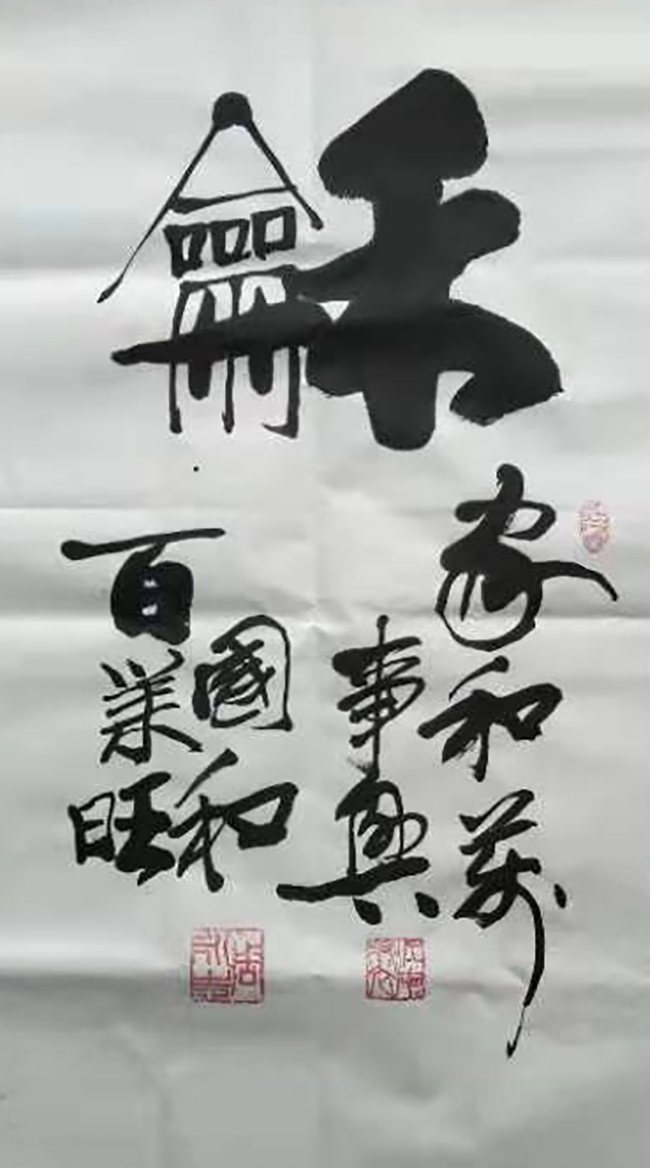 龢
家和萬
事興
國和
百業旺